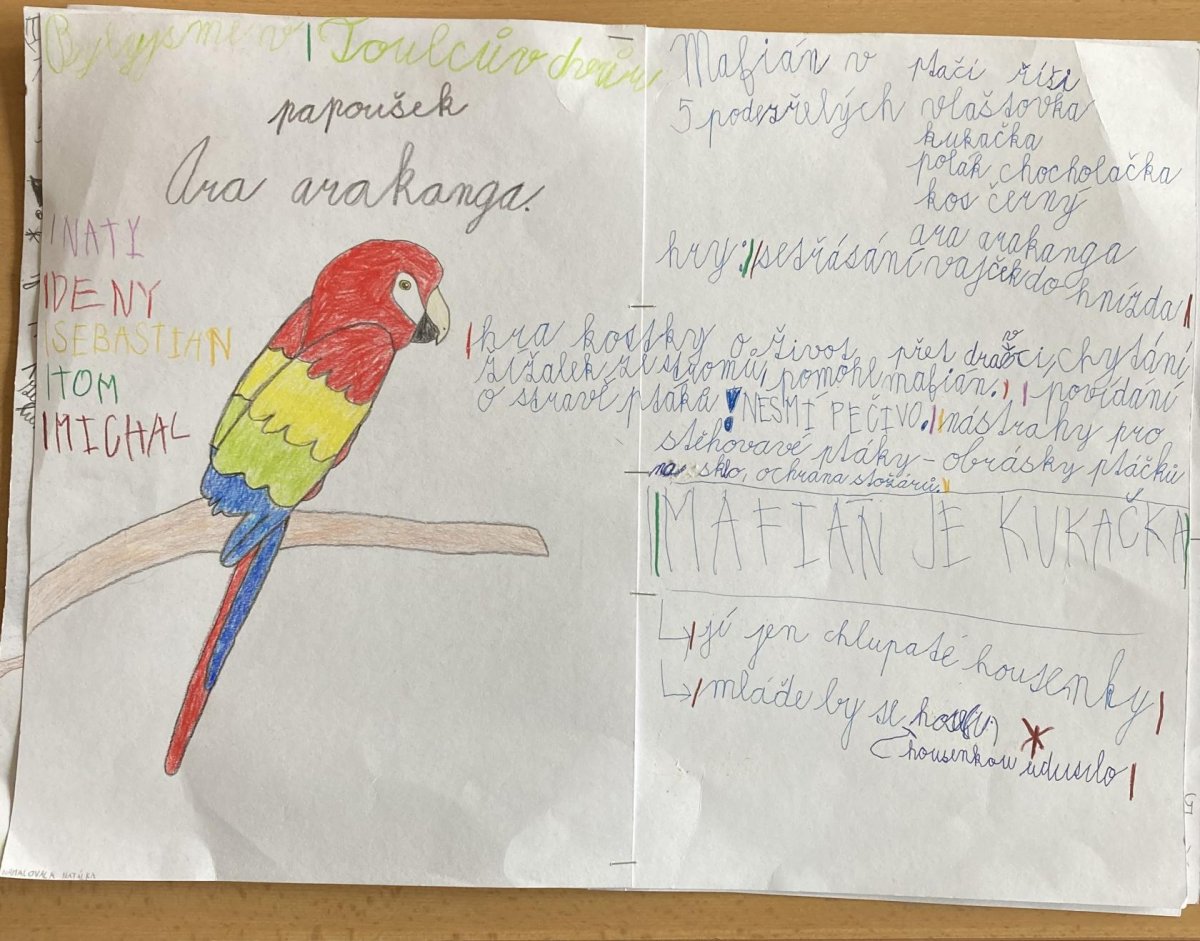 Byly jsme v Toulcův dvůru
papoušek
Ara arakanga.
NATY
DENY
SEBASTIAN
TOM
MICHAL
NAMALOVALA NATÁLKA
Mafián v ptačí říši
5 podezřelých vlaštovka
kukačka
polák chocholačka
kos černý
ara arakanga
hry: setřásání vajček do hnízda
hra kostky o život, přet dravci, chytání
žížalek, ze stromů, pomohl mafián. povídání
o stravě ptáků ! NESMÍ PEČIVO. nástrahy pro
stěhovavé ptáky - obrásky ptáčků
na sklo, ochrana stožárů.
MAFIÁN JE KUKAČKA
jí jen chlupaté housenky
mláďe by se
housenkou udusilo